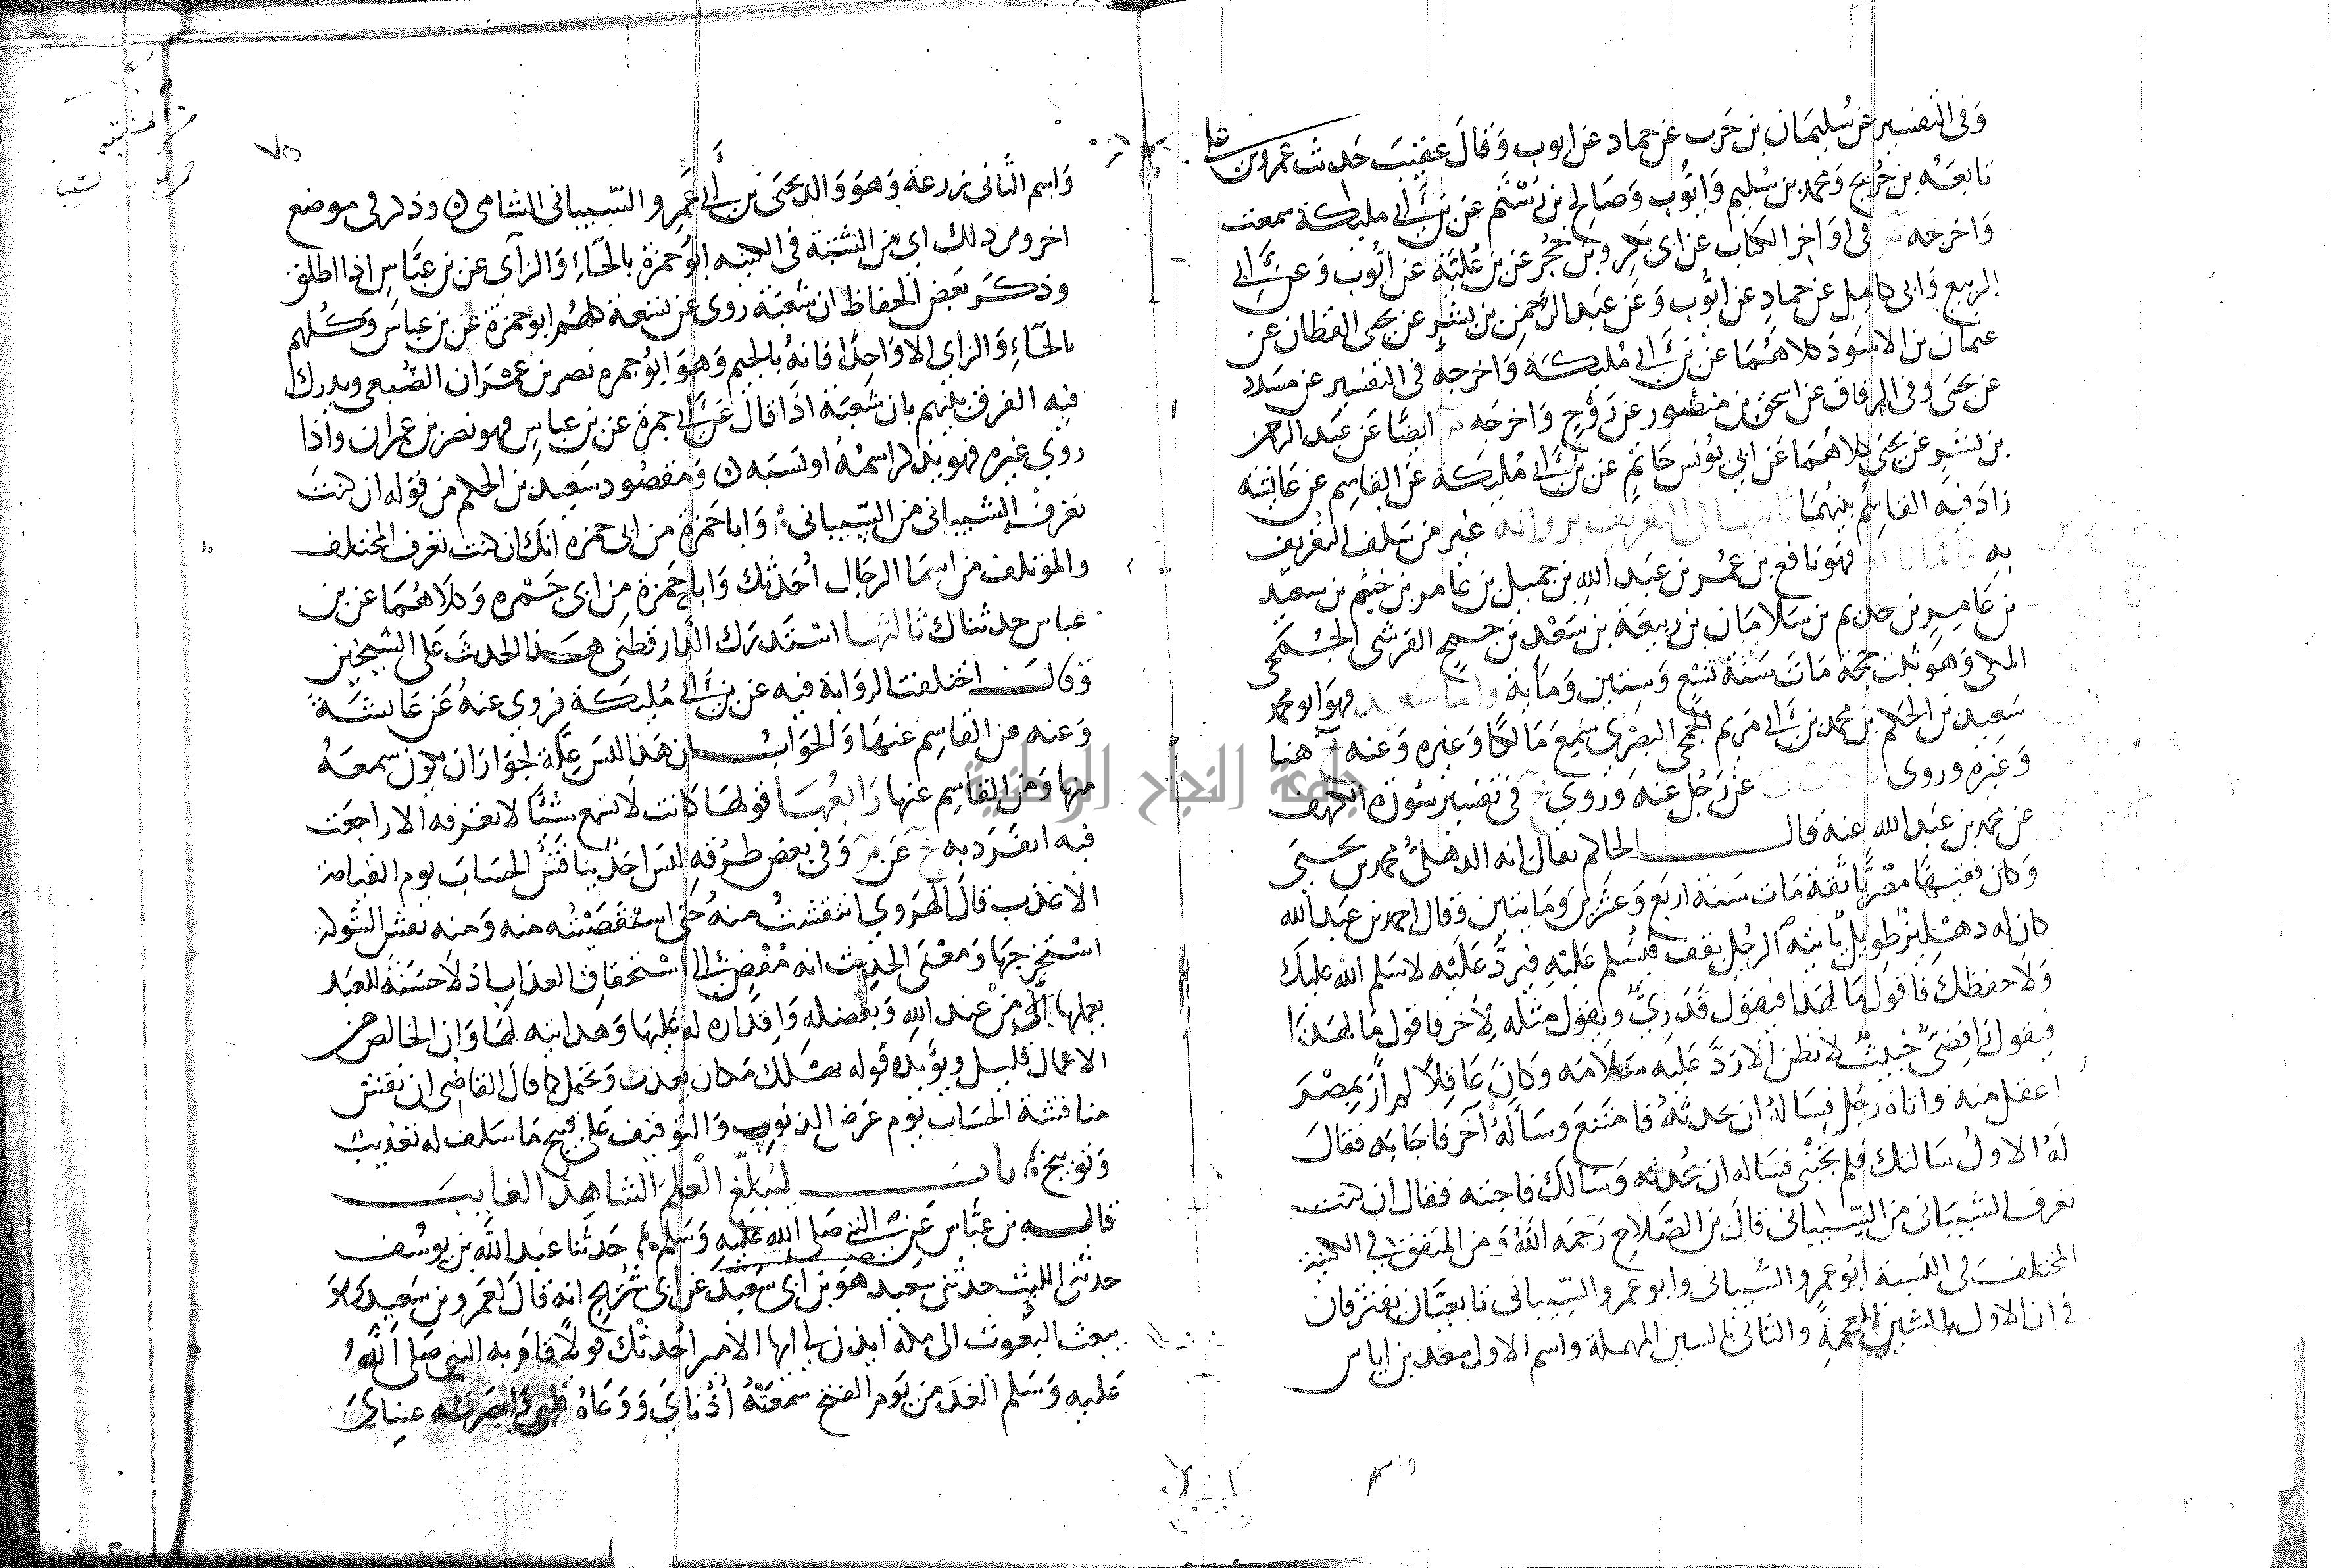 وفي التفسير عن سليمان بن حرب عن حماد عن ايوب وقال عقيب حديث عمرو بن علي
تابعه بن جريج ومحمد بن سليم وايوب وصالح بن رستم عن بن ابي مليكة سمعت
واخرجه م في اواخر الكتاب عن ابي بكر وبن حجر عن بن علية عن ايوب وعن ابي
الربيع وابي كامل عن حماد عن ايوب وعن عبد الرحمن بن بشر عن يحيى القطان عن
عثمان بن الاسود كلاهما عن بن ابي مليكة واخرجه في التفسير عن مسدد
عن يحيى وفي الرقاق عن اسحق بن منصور عن روح واخرجه م ايضا عن عبد الرحمن
بن بشر عن يحيى كلاهما عن ابي يونس حاتم عن بن ابي مليكة عن القاسم عن عائشة
زاد فيه القاسم بينهما ثانيها في التعريف برواته غير من سلف التعريف
به فاما نافع فهو نافع بن عمر بن عبد الله بن جميل بن عامر بن خيثم بن سعيد
بن عامر بن حذيم بن سلامان بن ربيعة بن سعد بن جمح القرشي الجمحي
المكي وهو ثبت حجة مات سنة تسع وستين ومائة واما سعيد فهو ابو محمد
سعيد بن الحكم بن محمد بن ابي مريم الجمحي البصري سمع مالكا وغيره وعنه خ هنا
وغيره وروى عن رجل عنه وروى خ في تفسير سورة الكهف
عن محمد بن عبد الله عنه قال الحاكم يقال انه الذهلي محمد بن يحيى
وكان فقيها مصريا ثقة مات سنة اربع وعشرين ومايتين وقال احمد بن عبد الله
كان له دهليز طويل ياتيه الرجل يقف فيسلم عليه فيرد عليه لا سلم الله عليك
ولا حفظك فاقول ما لهذا فيقول قدري ويقول مثله لاخر فاقول ما لهذا
فيقول رافضي خبيث لا نظن الا رد عليه سلامه وكان عاقلا لم ار بمصر
اعقل منه واتاه رجل فساله ان يحدثه فامتنع وسأله آخر فاجابه فقال
له الاول سالتك فلم تجبني فساله ان يحدثه وسالك فاجبته فقال ان كنت
تعرف الشيباني من السيباني قال بن الصلاح رحمه الله ومن المتفق في الكنية
المختلف في النسبة ابو عمرو الشيباني وابو عمرو السيباني تابعيان يفترقان
في ان الاول بالشين المعجمة والثاني بالسين المهملة واسم الاول سعد بن اياس
واسم
٧٥
واسم الثاني زرعة وهو والد يحيى بن ابي عمرو السيباني الشامي وذكر في موضع
اخر ومن ذلك اي من النسبة في الكنيه ابو حمزة بالحاء والزاي عن بن عباس اذا اطلق
وذكر بعض الحفاظ ان شعبة روى عن تسعة كلهم ابو حمزة عن بن عباس وكلهم
بالحاء والزاي الا واحدا فانه بالجيم وهو ابو جمره نصر بن عمران الضبعي ويدرك
فيه الفرق بينهم بان شعبة اذا قال عن ابي جمرة عن بن عباس فهو نصر بن عمران واذا
روى غيره فهو يذكر اسمه او نسبه ومقصود سعيد بن الحكم من قوله ان كنت
تعرف الشيباني من السيباني وابا حمزة من ابي جمره انك ان كنت تعرف المختلف
والمؤتلف من اسما الرجال احدثك وابا حمزة من ابي جمره وكلاهما عن بن
عباس حدثناك ثالثها استدرك الدارقطني هذا الحديث على الشيخين
وقال اختلفت الرواية فيه عن بن ابي مليكة فروي عنه عن عائشة
وعنه عن القاسم عنها والجواب ان هذا ليس علة لجواز ان يكون سمعه
منها ومن القاسم عنها رابعها قولها كانت لا تسمع شيئا لا تعرفه الا راجعت
فيه انفرد به خ عن م وفي بعض طرقه ليس احد يناقش الحساب يوم القيامة
الا عذب قال الهروي انتقشت منه حتى استقصيته منه ومنه نقش الشوكة
استخرجها ومعنى الحديث انه مفض الى استحقاق العذاب اذ لا حسنة للعبد
يعملها الا من عند الله وبفضله واقداره له عليها وهدايته لها وان الخالص من
الاعمال قليل ويؤيده قوله يهلك مكان يعذب ويحتمل كما قال القاضي ان نفس
مناقشة الحساب يوم عرض الذنوب والتوقيف على قبيح ما سلف له تعذيب
وتوبيخ باب ليبلغ العلم الشاهد الغايب
قاله بن عباس عن النبي صلى الله عليه وسلم حدثنا عبد الله بن يوسف
حدثني الليث حدثني سعيد هو بن ابي سعيد عن ابي شريح انه قال لعمرو بن سعيد وهو
يبعث البعوث الى مكة ايذن لي ايها الامير احدثك قولا قام به النبي صلى الله
عليه وسلم الغد من يوم الفتح سمعته أذناي ووعاه قلبي وابصرته عيناي
جامعة النجاح الوطنية